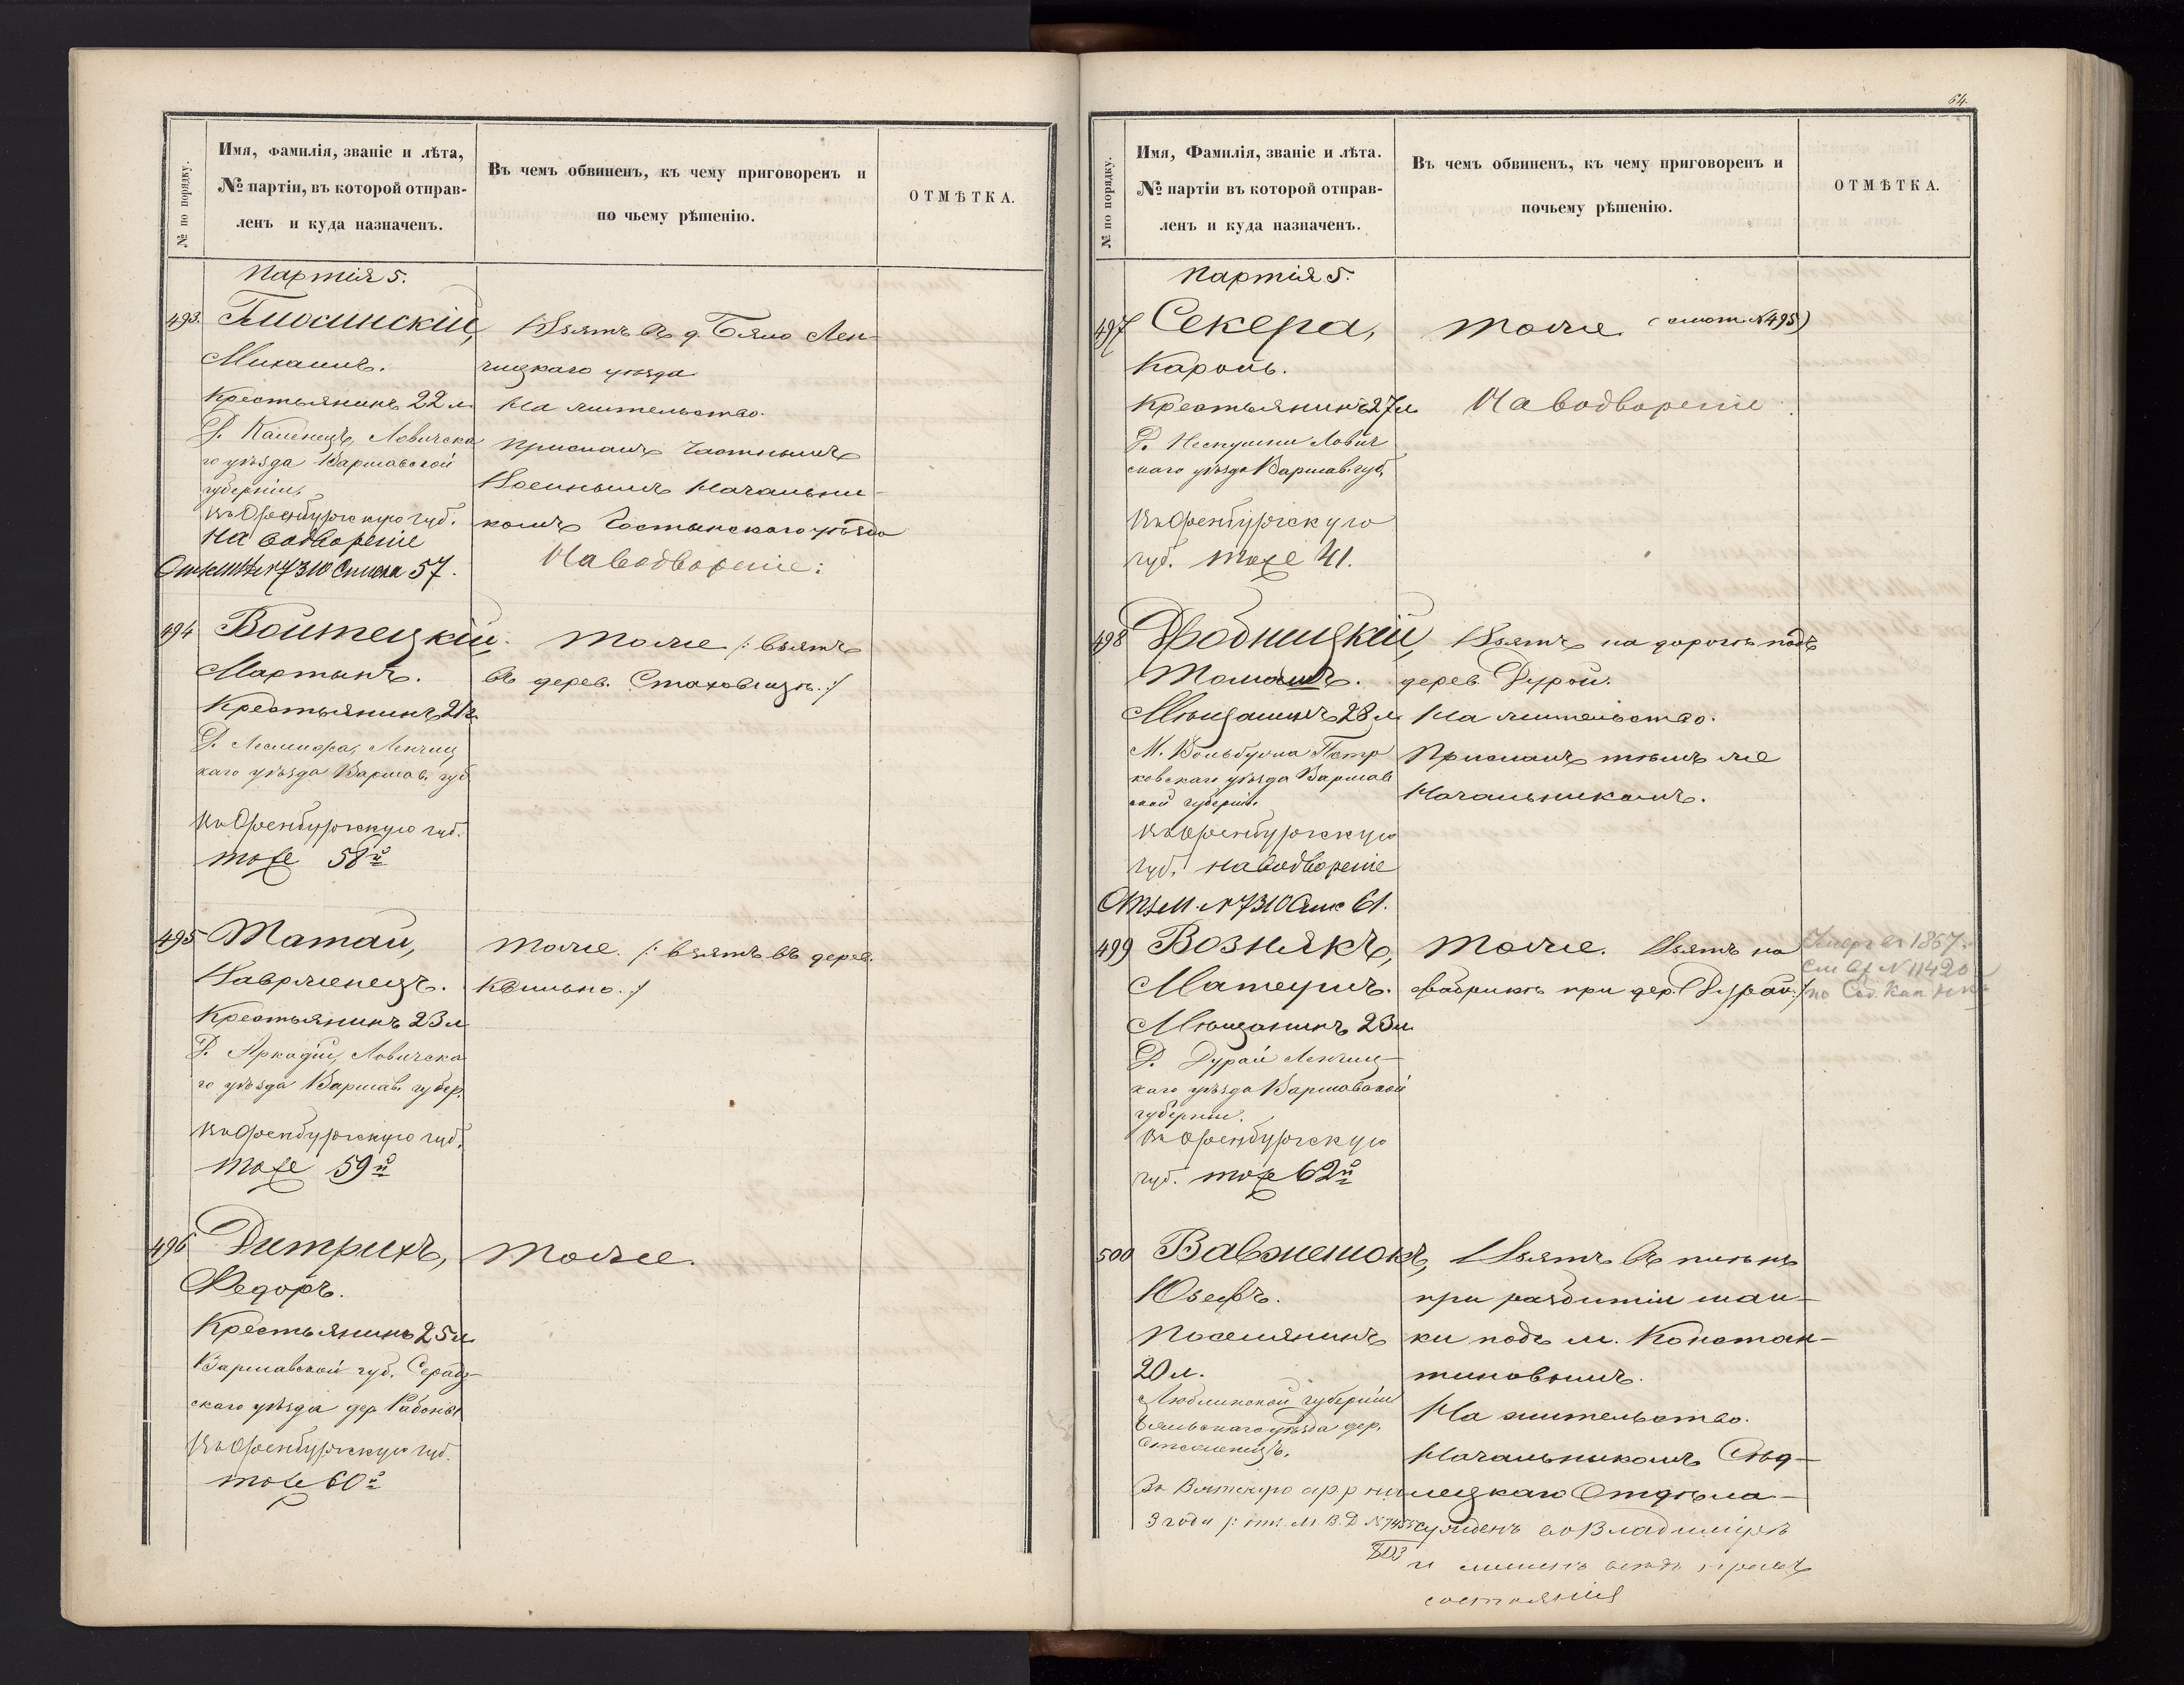 № по порядку.
Имя, Фамилія, званіе и лѣта,
№ партіи, въ которой отправ-
ленъ и куда назначенъ.
Въ чемъ обвиненъ, къ чему приговоренъ и
по чьему рѣшенію.
ОТМѢТКА.
Партія 5.
493.
Михаилъ.
Крестьянинъ 22 л.
го уѣзда Варшавской
губерніи,
Въ Оренбургскую губ.
На водвореніе
№ 7310 Списка 57.
Взятъ въ д. Бяло Лен-
чицкаго уѣзда
На жительство.
Присланъ Частнымъ
Военнымъ Начальни-
комъ Гостынскаго уѣзда
На водвореніе.
494
Войтецкій,
Мартынъ.
Крестьянинъ 21 г.
каго уѣзда Варшав. губ
Въ Оренбургскую губ.
тоже 58й
Тоже /: взятъ
въ дерев. :/
495
Матай,
Ваврженецъ.
Крестьянинъ 23 л
Д. Аркадіи, Ловичска
го уѣзда Варшав. губер.
Въ Оренбургскую губ.
тоже 59й
Тоже. /: взятъ въ дерев.
496
Дитрихъ,
Федоръ.
Крестьянинъ 25 л
Варшавской губ. Серадз-
скаго уѣзда дер.
Въ Оренбургскую губ.
тоже 60й
Тоже.
64.
№ по порядку.
Имя, Фамилія, званіе и лѣта.
№ партіи въ которой отправ-
ленъ и куда назначенъ.
Въ чемъ обвиненъ, къ чему приговоренъ и
почьему рѣшенію.
ОТМѢТКА.
Партія 5.
497
Секера,
Кароль.
Крестьянинъ 27 л
Лович
скаго уѣзда Варшав. губ,
Въ Оренбургскую
губ. тоже 41.
Тоже (смот. № 495)
На водвореніе
498
Дробницкій,
Томашъ.
Мѣщанинъ 28 л
М. Вольбужа Петр
ковскаго уѣзда Варшав
ской губерніи.
Въ Оренбургскую
губ. на водвореніе
№ 7310 Спис 61.
Взятъ на дорогѣ подъ
дерев. Дурой.
На жительство.
Присланъ тѣмъ же
Начальникомъ.
499
Вознякъ,
Матеушъ.
Мѣщанинъ 23 л
Д. Дурай Ленчиц-
каго уѣзда Варшавской
губерніи.
Въ Оренбургскую
губ. тоже 62й
Тоже. Взятъ на
фабрикѣ при дер. Дурай./
Умеръ въ 1867 г.
№ 11420
500
Вавженюкъ,
Юзефъ.
Поселянинъ
20 л.
Люблинской губерніи
Бяльскаго уѣзда дер.
3 года /: М. В. Д. № 7455
Взятъ въ плѣнъ
при разбитіи шай-
ки подъ м. Констан-
тиновымъ.
На жительство.
Начальникомъ Сѣд-
лецкаго Отдѣла
сужденъ во Владимірѣ
и лишенъ всѣхъ правъ
состоянія